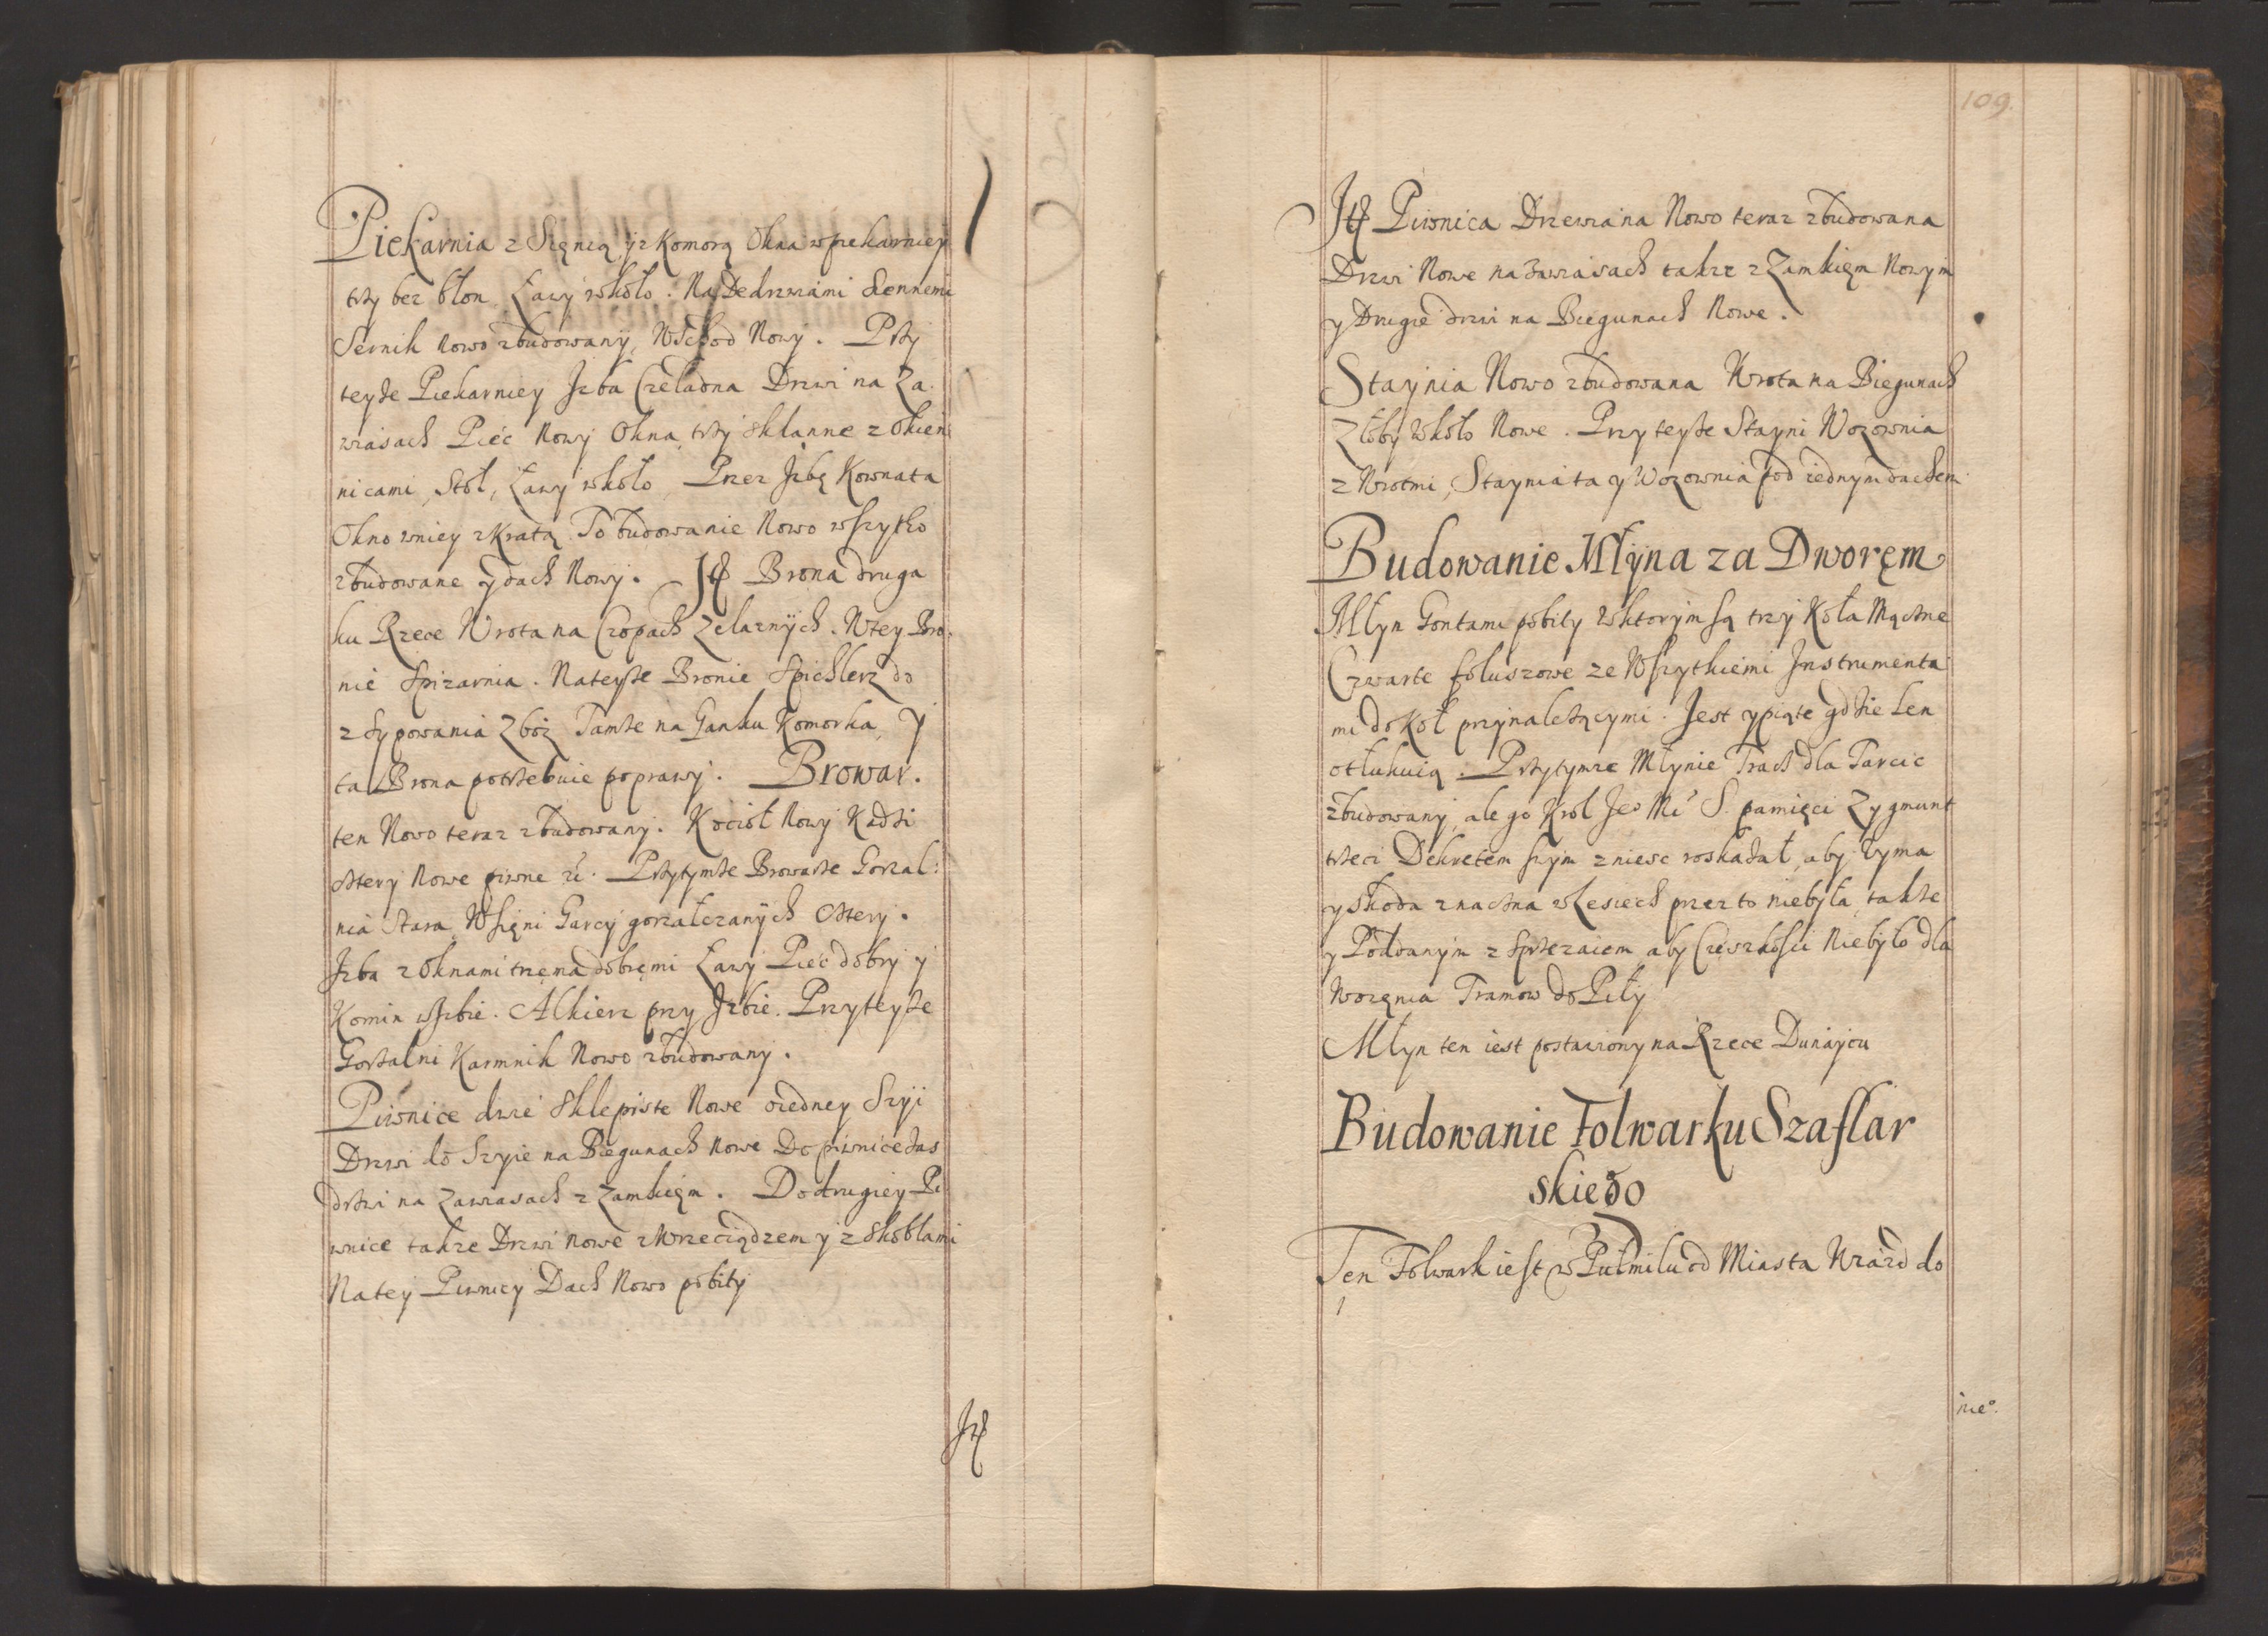 Piekarnia z Sięnią y z Komorą Okna w piekarniey
trzy bez błon Ławy wkoło. Nad Dedrzwiami Siennemi
Sernik nowo zbudowany, Wschod Nowy. Przy
teyże Piekarniey Izba Czeladna Drzwi na Za-
wiasach Piec Nowy Okna trzy sklanne z Okien
nicami, Stół, Ławy wkoło, Przez Izbę Kownata
Okno wniey z Kratą To budowanie Nowo wszytko
zbudowane y dach Nowy. It Brona druga
ku Rzece Wrota na Czopach Zelaznych. W tey Bro-
nie Spizarnia. Na teyże Bronie Spichlerz do
zsypowania Zboż Tamże na Ganku Komorka, y
ta Brona potrzebuie poprawy. Browar.
ten Nowo teraz zbudowany. Kocioł Nowy Kadzi
cztery Nowe piwne. Przytymże Browarze Gorzal:
nia Stara, W sięni Garcy gorzałczanych cztery.
Izba z Oknami trzema dobręmi Ławy Piec dobry y
Komin w Izbie. Alkierz przy Izbie. Przyteyże
Gorzalni Karmnik Nowo zbudowany.
Piwnice dwie Sklepiste Nowe oiedney Szyi
Drzwi do Szyie na Biegunach nowe Do piwnice zas
drzwi na Zawiasach z Zamkięm. Do drugiey Pi
wnice takze Drzwi nowe z Wrzeciądzem y z Skoblami
Na tey Piwnicy Dach Nowo pobity
It
109.
It Piwnica Drzewiana Nowo teraz zbudowana
Drzwi Nowe na zawiasach takze z Zamkięm Nowym
y Drugie drzwi na Biegunach Nowe.
Staynia Nowo zbudowana Wrota na Biegunach
Złoby wkoło Nowe. Przy teyże Stayni Wozownia
z Wrotmi, Staynia ta y Wozownia pod iednym dachem
Budowanie Młyna za Dworęm
Młyn Gontami pobity w ktorym są trzy Koła Mączne
Czwarte foluszowe ze Wszytkiemi Instrumenta
mi do Koł przynależącymi. Jest y piąte gdzie Len
otłukuią. Przytymze Młynie Tracz dla Tarcic
zbudowany, ale go Krol Je° Mc S. pamięci Zygmunt
trzeci Dekretem swym zniesc roskazał, aby tyma
y szkoda znaczna w Lesiech przez to niebyła, takze
y Poddanym z Sprzezaiem aby Cięszkości Niebyło dla
Wozęnia Tramow do Piły
Młyn ten iest postawiony na Rzece Dunaycu
Budowanie Folwarku Szaflar
skiego
Ten Folwark iest w Pułmilu od Miasta Wiazd do
nie°.